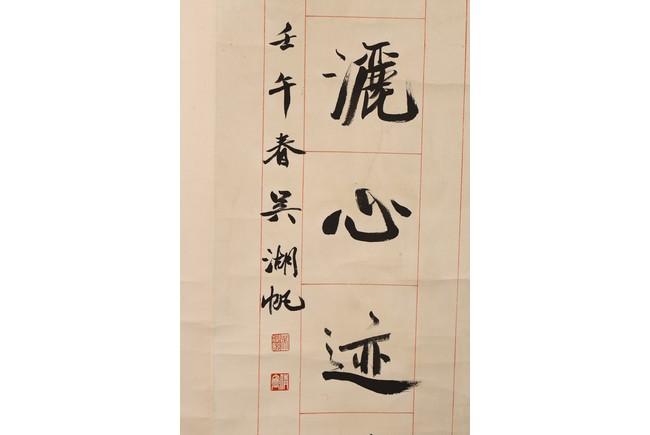 灑心迹
壬午春吳湖帆